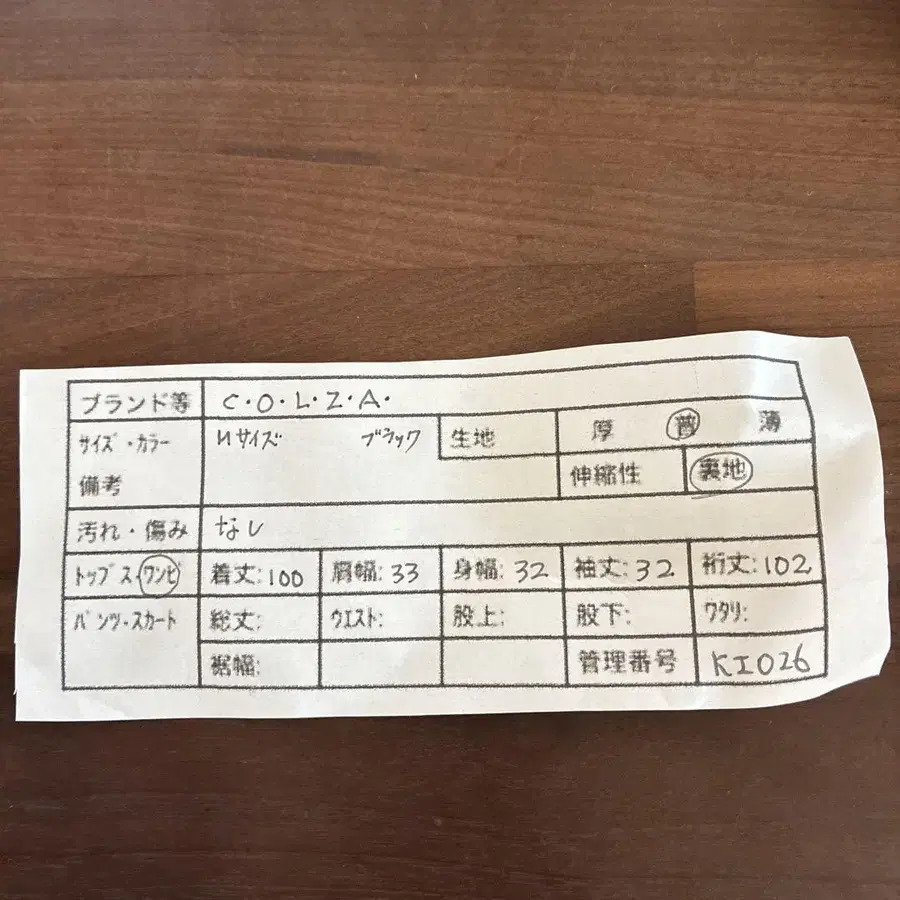 ブランド等 C・O・L・Z・A・
サイズ・カラー Mサイズ ブラック 生地 厚 普 薄
備考 伸縮性 裏地
汚れ・傷み なし
トップス・ワンピ 着丈:100 肩幅:33 身幅:32 袖丈:32 裄丈:102
パンツ・スカート 総丈: ウエスト: 股上: 股下: ワタリ:
裾幅: 管理番号 KI026